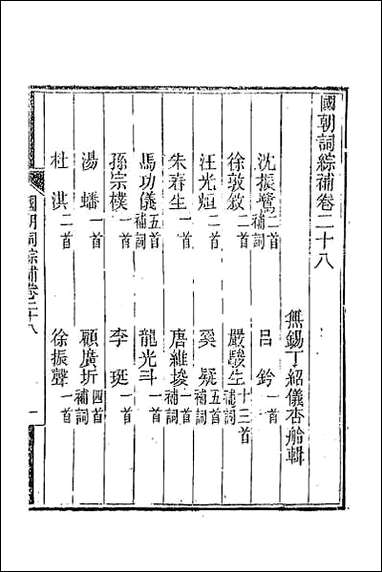 國朝詞綜補卷二十八
無錫丁紹儀杏舲輯
沈振鷺二首補詞
呂鈐一首
徐敦敘二首
嚴駿生十三首補詞
汪光烜二首
奚疑五首補詞
朱春生一首
唐維埈一首補詞
馬功儀五首補詞
龍光斗一首
孫宗樸一首
李珽一首
湯蟠一首
顧廣圻四首補詞
杜淇二首
徐振聲一首
國朝詞綜補卷二十八
一